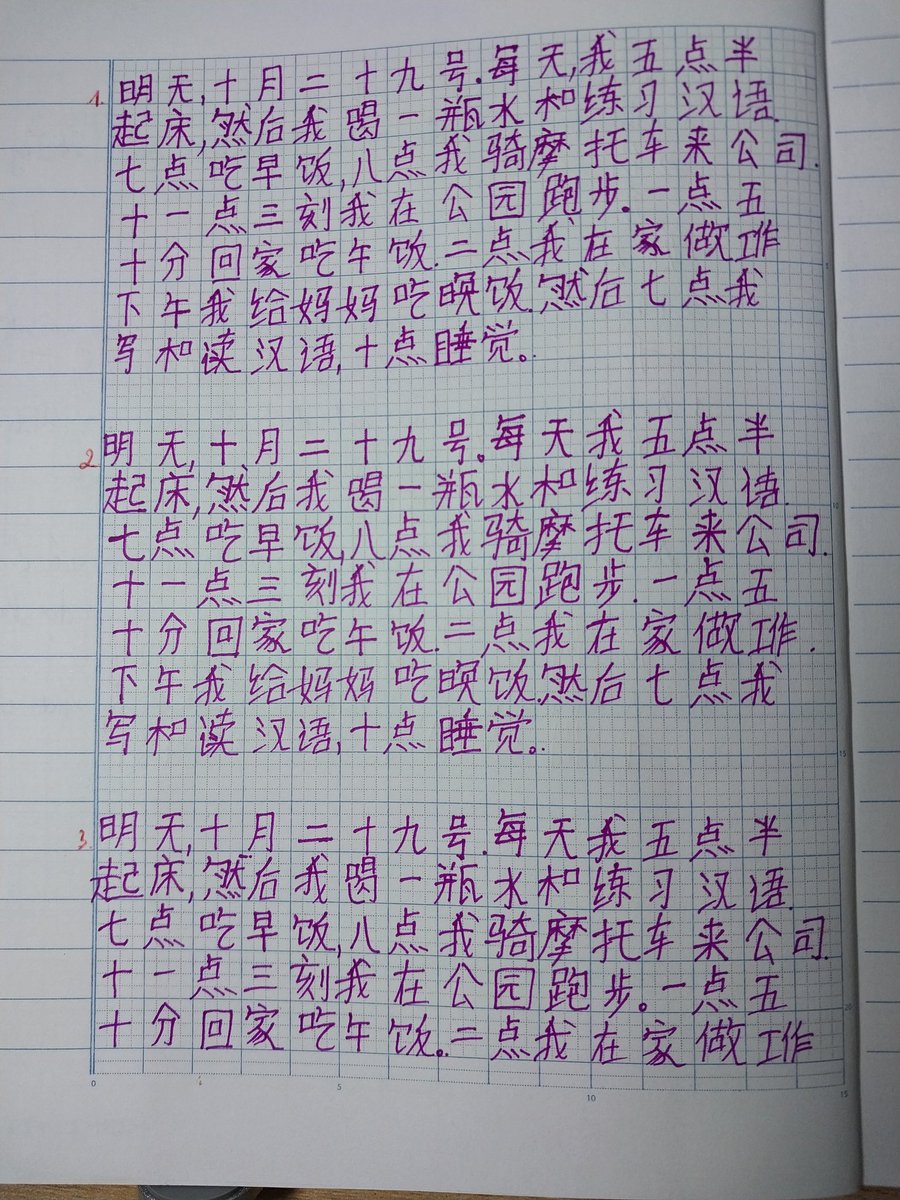 1. 明天,十月二十九号.每天,我五点半
起床,然后我喝一瓶水和练习汉语.
七点吃早饭,八点我骑摩托车来公司.
十一点三刻我在公园跑步.一点五
十分回家吃午饭.二点我在家做工作
下午我给妈妈吃晚饭.然后七点我
写和读汉语,十点睡觉。
2. 明天,十月二十九号。每天我五点半
起床,然后我喝一瓶水和练习汉语.
七点吃早饭,八点我骑摩托车来公司.
十一点三刻我在公园跑步.一点五
十分回家吃午饭.二点我在家做工作.
下午我给妈妈吃晚饭.然后七点我
写和读汉语,十点睡觉。
3. 明天,十月二十九号.每天我五点半
起床,然后我喝一瓶水和练习汉语.
七点吃早饭,八点我骑摩托车来公司.
十一点三刻我在公园跑步。一点五
十分回家吃午饭。二点我在家做工作
5
10
15
20
0 5 10 15